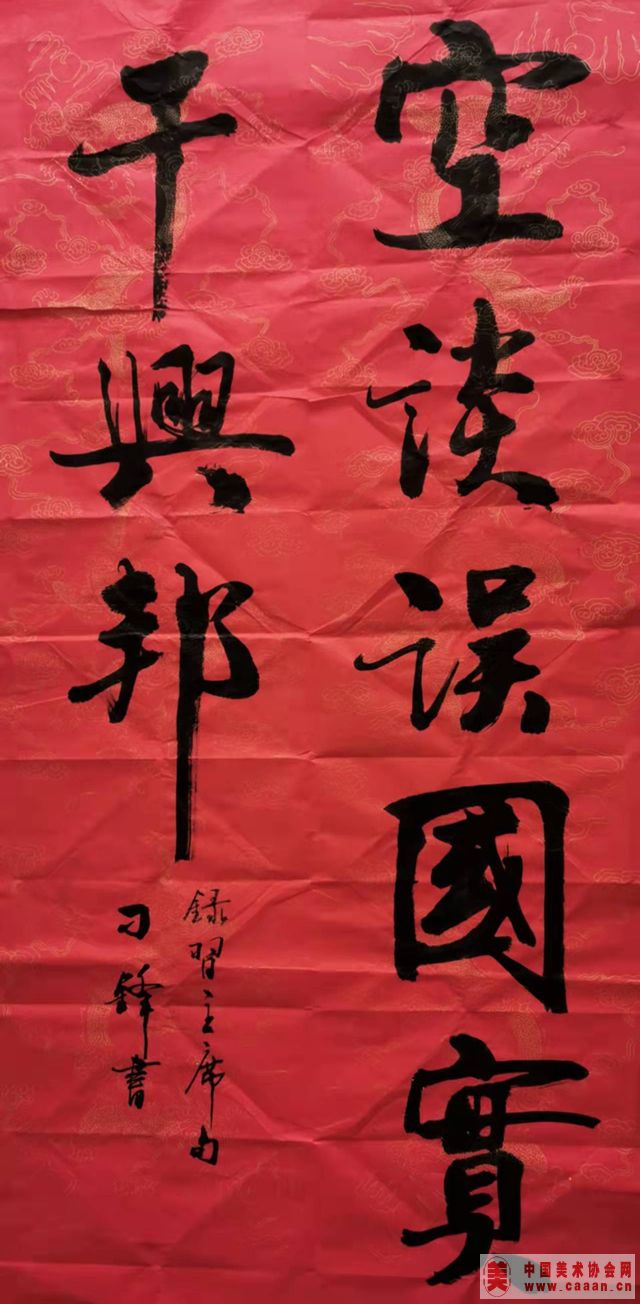 空談误國實
干興邦
録習主席句
刁鋒書
美 中国美术协会网
www.caaan.cn